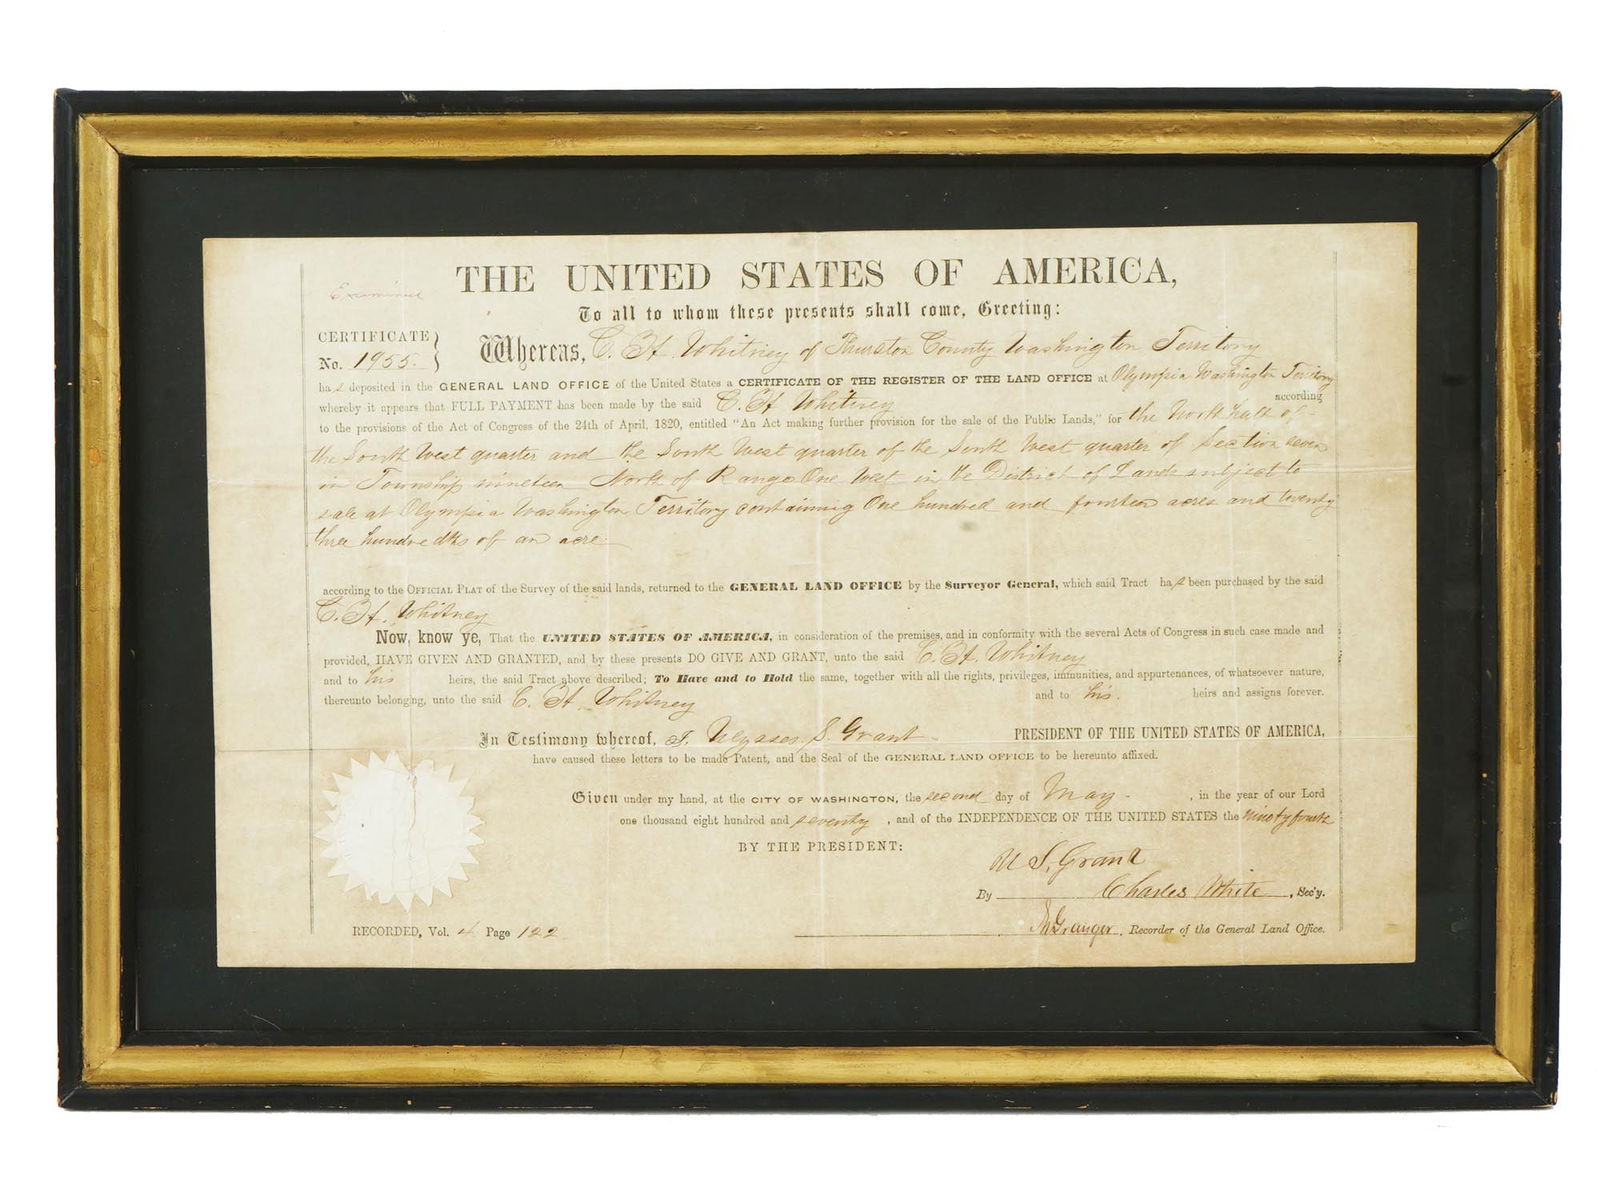 THE UNITED STATES OF AMERICA,
Examined
To all to whom these presents shall come, Greeting:
CERTIFICATE
No. 1955.
Whereas, C. H. Whitney of Thurston County Washington Territory
has deposited in the GENERAL LAND OFFICE of the United States a CERTIFICATE OF THE REGISTER OF THE LAND OFFICE at Olympia Washington Territory
whereby it appears that FULL PAYMENT has been made by the said C. H. Whitney according
to the provisions of the Act of Congress of the 24th of April, 1820, entitled "An Act making further provision for the sale of the Public Lands," for the North half of
the South West quarter and the South West quarter of the South West quarter of Section seven
in Township nineteen North of Range One West in the District of Lands subject to
sale at Olympia Washington Territory containing One hundred and fourteen acres and twenty
three hundredths of an acre
according to the OFFICIAL PLAT of the Survey of the said lands, returned to the GENERAL LAND OFFICE by the Surveyor General, which said Tract has been purchased by the said
C. H. Whitney
Now, know ye, That the UNITED STATES OF AMERICA, in consideration of the premises, and in conformity with the several Acts of Congress in such case made and
provided, HAVE GIVEN AND GRANTED, and by these presents DO GIVE AND GRANT, unto the said C. H. Whitney
and to his heirs, the said Tract above described; To Have and to Hold the same, together with all the rights, privileges, immunities, and appurtenances, of whatsoever nature,
thereunto belonging, unto the said C. H. Whitney and to his heirs and assigns forever.
In Testimony whereof, I, Ulysses S. Grant PRESIDENT OF THE UNITED STATES OF AMERICA,
have caused these letters to be made Patent, and the Seal of the GENERAL LAND OFFICE to be hereunto affixed.
Given under my hand, at the CITY OF WASHINGTON, the second day of May, in the year of our Lord
one thousand eight hundred and seventy, and of the INDEPENDENCE OF THE UNITED STATES the ninety fourth
BY THE PRESIDENT: U. S. Grant
By Charles White, Sec'y.
RECORDED, Vol. 4 Page 122 Granger, Recorder of the General Land Office.